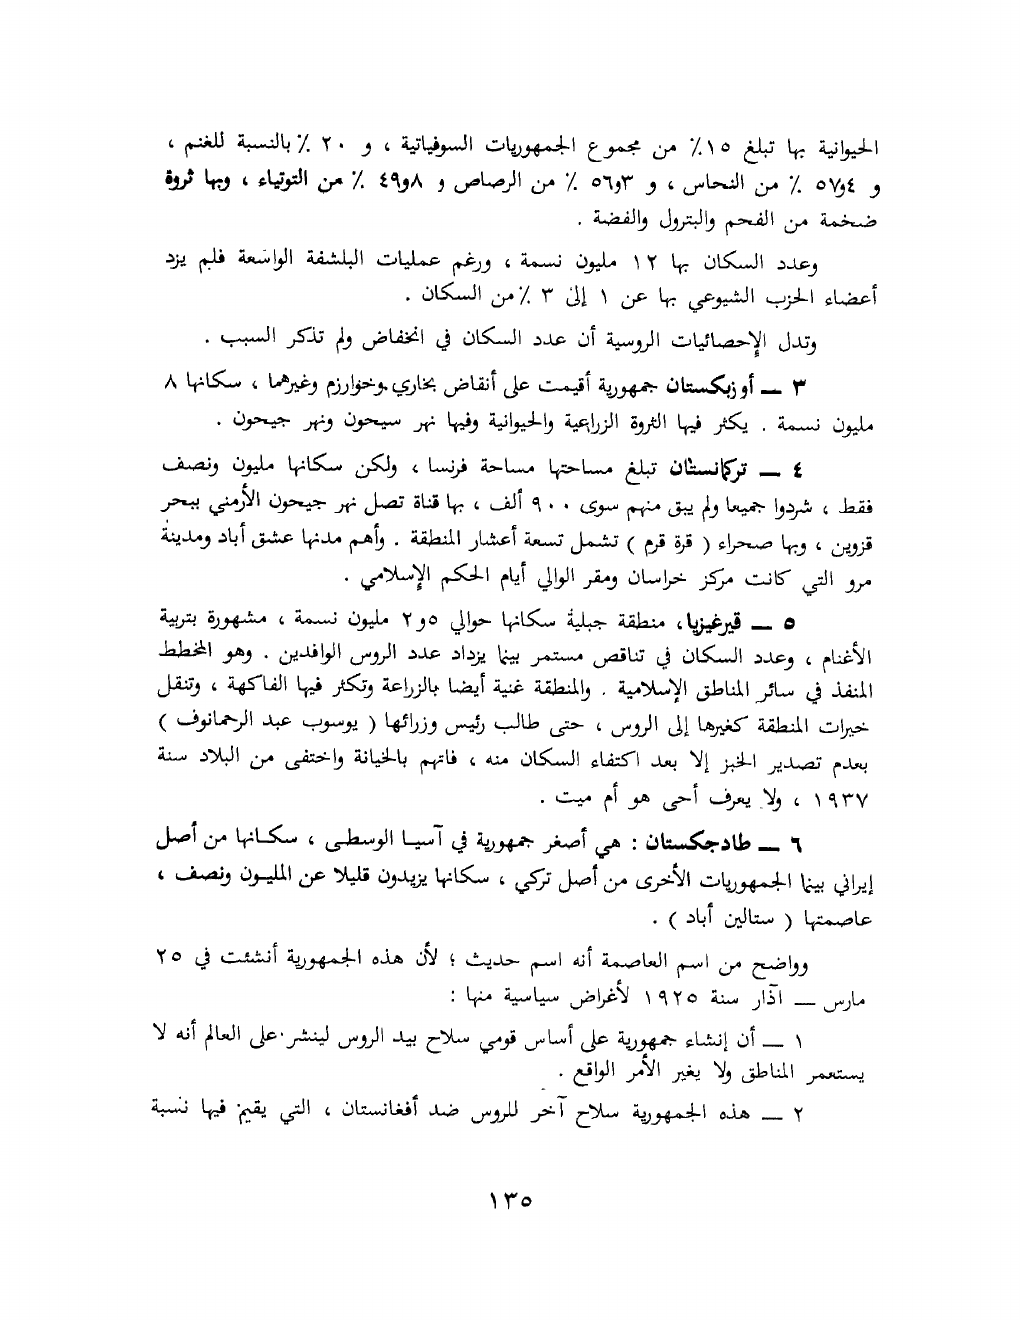 الحيوانية بها تبلغ ١٥٪ من مجموع الجمهوريات السوفياتية ، و ٢٠ ٪ بالنسبة للغنم ،
و ٤و٥٧ ٪ من النحاس ، و ٣و٥٦ ٪ من الرصاص و ٨و٤٩ ٪ من التوتياء ، وبها ثروة
ضخمة من الفحم والبترول والفضة .
وعدد السكان بها ١٢ مليون نسمة ، ورغم عمليات البلشفة الواسعة فلم يزد
أعضاء الحزب الشيوعي بها عن ١ إلى ٣ ٪ من السكان .
وتدل الإحصائيات الروسية أن عدد السكان في انخفاض ولم تذكر السبب .
٣ — أوزبكستان جمهورية أقيمت على أنقاض بخاري وخوارزم وغيرهما ، سكانها ٨
مليون نسمة . يكثر فيها الثروة الزراعية والحيوانية وفيها نهر سيحون ونهر جيحون .
٤ — تركمانستان تبلغ مساحتها مساحة فرنسا ، ولكن سكانها مليون ونصف
فقط ، شردوا جميعا ولم يبق منهم سوى ٩٠٠ ألف ، بها قناة تصل نهر جيحون الأرمني ببحر
قزوين ، وبها صحراء ( قرة قرم ) تشمل تسعة أعشار المنطقة . وأهم مدنها عشق أباد ومدينة
مرو التي كانت مركز خراسان ومقر الوالي أيام الحكم الإسلامي .
٥ — قيرغيزيا، منطقة جبلية سكانها حوالي ٥و٢ مليون نسمة ، مشهورة بتربية
الأغنام ، وعدد السكان في تناقص مستمر بينما يزداد عدد الروس الوافدين . وهو المخطط
المنفذ في سائر المناطق الإسلامية . والمنطقة غنية أيضا بالزراعة وتكثر فيها الفاكهة ، وتنقل
خيرات المنطقة كغيرها إلى الروس ، حتى طالب رئيس وزرائها ( يوسوب عبد الرحمانوف )
بعدم تصدير الخبز إلا بعد اكتفاء السكان منه ، فاتهم بالخيانة واختفى من البلاد سنة
١٩٣٧ ، ولا يعرف أحى هو أم ميت .
٦ — طادجكستان : هي أصغر جمهورية في آسيا الوسطى ، سكانها من أصل
إيراني بينما الجمهوريات الأخرى من أصل تركي ، سكانها يزيدون قليلا عن المليون ونصف ،
عاصمتها ( ستالين أباد ) .
وواضح من اسم العاصمة أنه اسم حديث ؛ لأن هذه الجمهورية أنشئت في ٢٥
مارس — آذار سنة ١٩٢٥ لأغراض سياسية منها :
١ — أن إنشاء جمهورية على أساس قومي سلاح بيد الروس لينشر على العالم أنه لا
يستعمر المناطق ولا يغير الأمر الواقع .
٢ — هذه الجمهورية سلاح آخر للروس ضد أفغانستان ، التي يقيم فيها نسبة
١٣٥